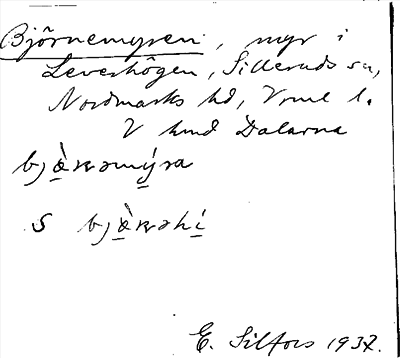 Björnemyren, myr i
Leverhögen, Silleruds sn,
Nordmarks hd, Vrml l.
V hmd Dalarna
bjæ̀ʀnəmýra
S bjæ̀ʀnəhí
E. Silfors 1937.